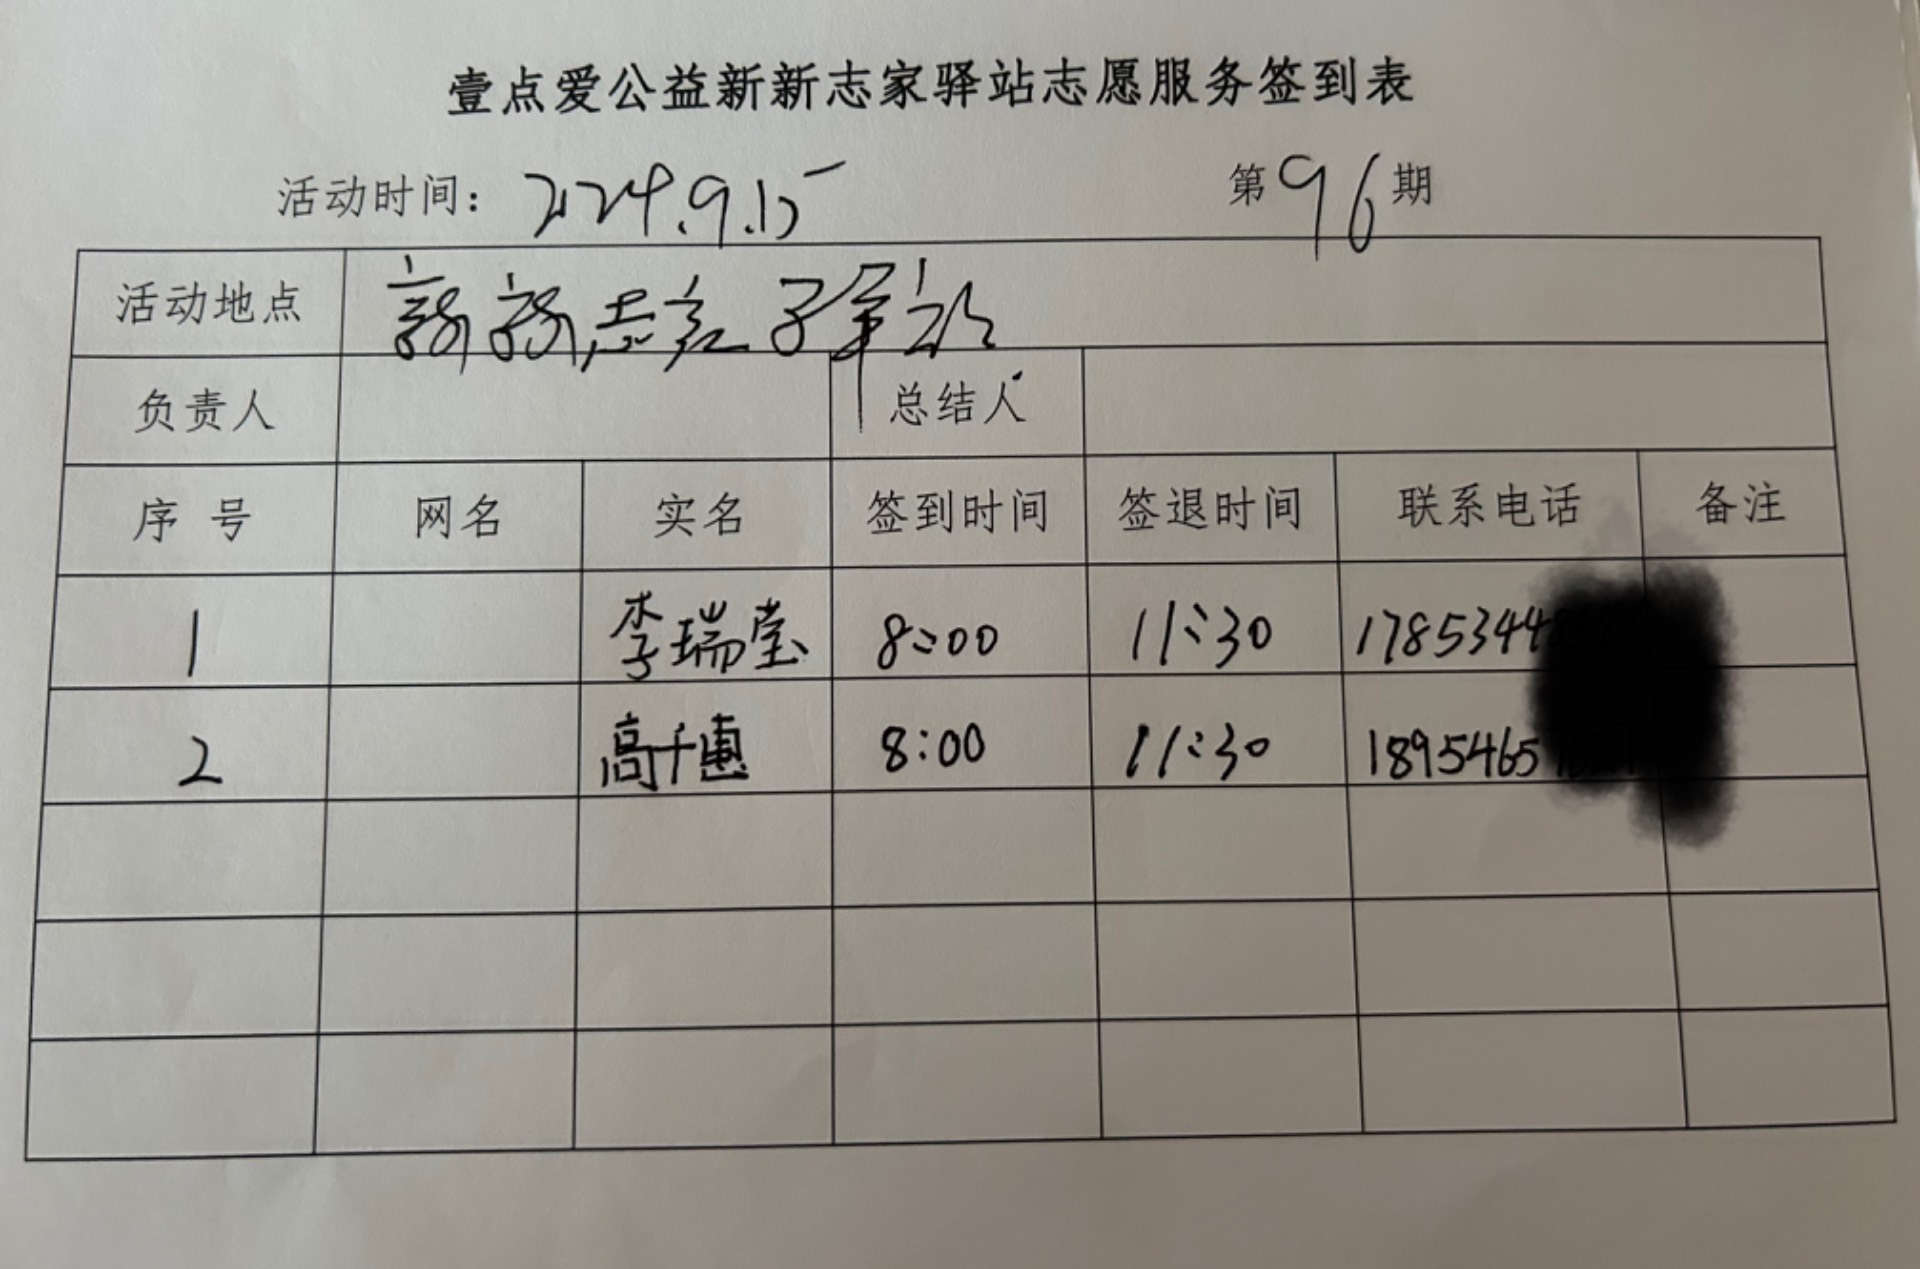 壹点爱公益新新志家驿站志愿服务签到表
活动时间：2024.9.15 第96期
活动地点 新新志家驿站
负责人 总结人
序号 网名 实名 签到时间 签退时间 联系电话 备注
1 李瑞莹 8:00 11:30 1785344
2 高千惠 8:00 11:30 18954657